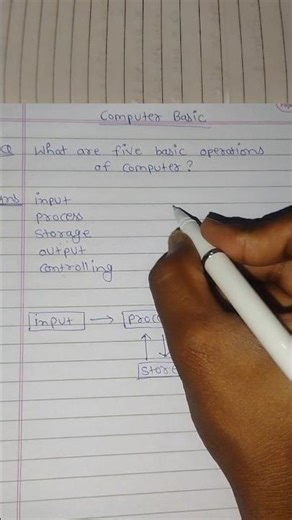 Computer Basic
Q What are five basic operations
of computer?
Ans input
process
storage
output
controlling
input →